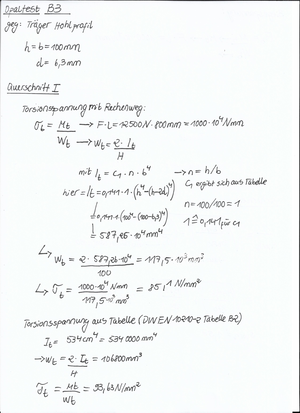 Opaltest B3
geg: Träger Hohlprofil
h = b = 100mm
d = 6,3mm
Querschnitt I
Torsionsspannung mit Rechenweg:
σt = Mt / Wt → F·L = 12500N · 800mm = 1000·10⁴ Nmm
→ Wt = 2·It / H
mit It = c₁ · n · b⁴ → n = h/b
c₁ ergibt sich aus Tabelle
hier = It = 0,141·1·(h⁴-(b-2d)⁴)
n = 100/100 = 1
= 0,141·1·(100⁴-(100-6,3)⁴) 1 ≙ 0,141 für c₁
= 587,26·10⁴ mm⁴
↳ Wt = 2·587,26·10⁴ / 100 = 117,5·10³ mm³
↳ τt = 1000·10⁴ Nmm / 117,5·10³ mm³ = 85,1 N/mm²
Torsionsspannung aus Tabelle (DIN EN 10210-2 Tabelle B2)
It = 534cm⁴ = 5340000mm⁴
→ Wt = 2·It / H = 106800mm³
τt = Mt / Wt = 93,63 N/mm²